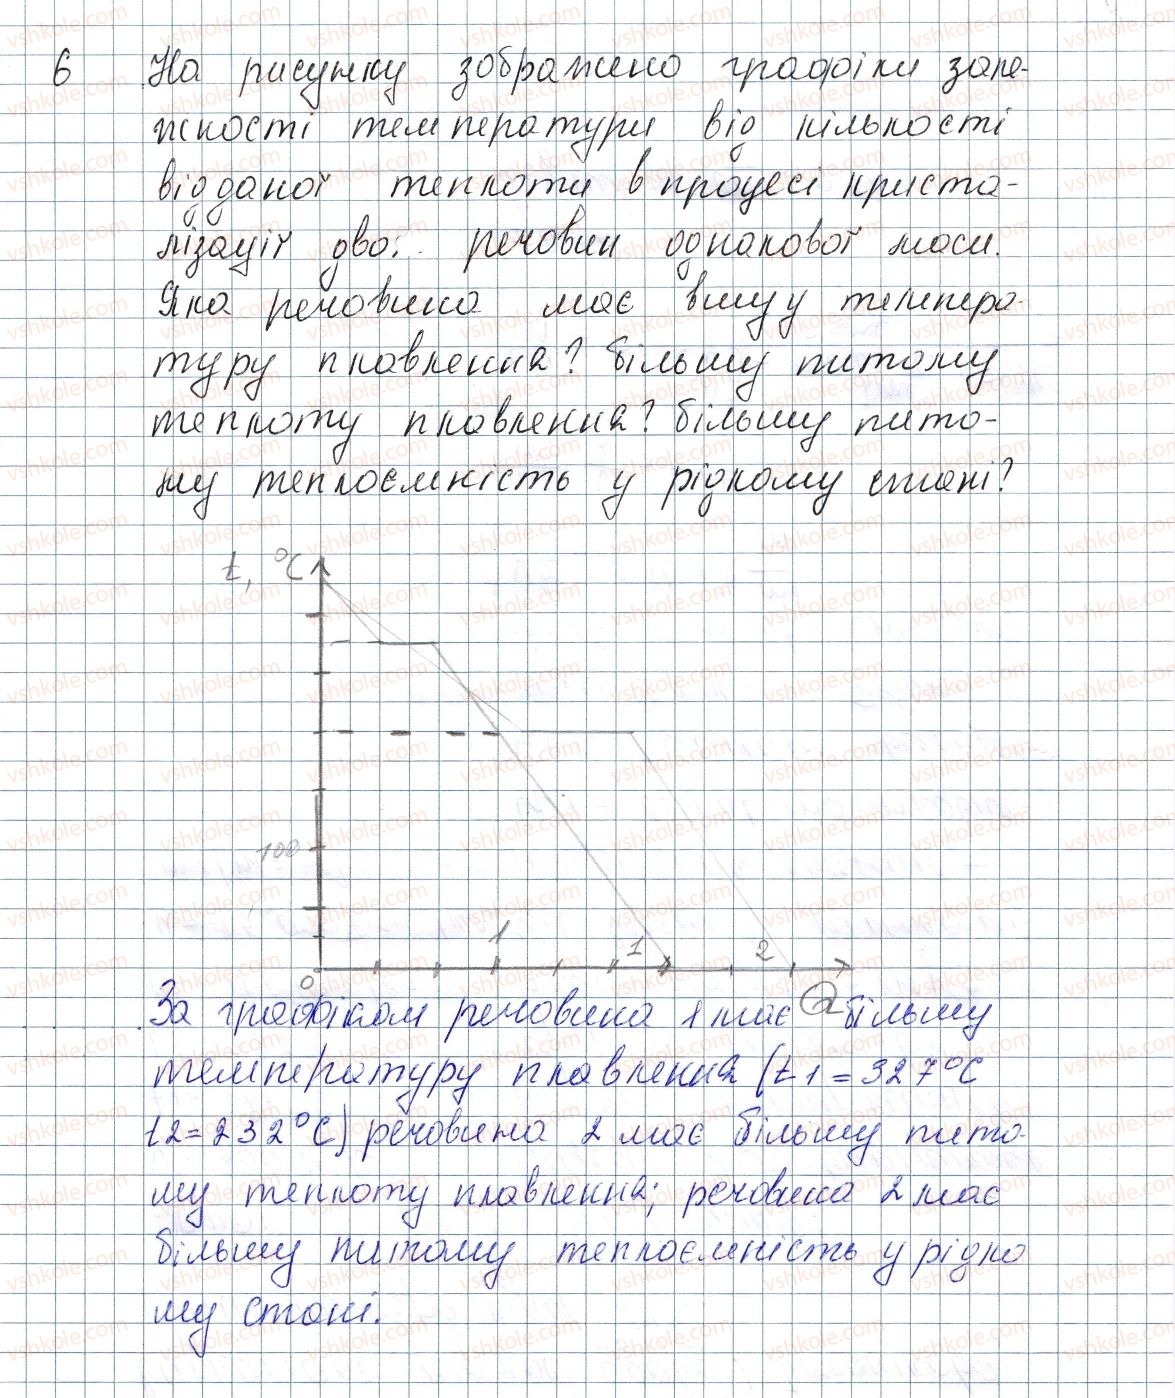 6 На рисунку зображено графіки зале-
жності температури від кількості
відданої теплоти в процесі криста-
лізації двох речовин однакової маси.
Яка речовина має вищу темпера-
туру плавлення? більшу питому
теплоту плавлення? більшу пито-
му теплоємність у рідкому стані?
t, °C
100
1
1 2
0
За графіком речовина 1 має більшу
температуру плавлення (t1 = 327°C
t2 = 232°C) речовина 2 має більшу пито-
му теплоту плавлення; речовина 2 має
більшу питому теплоємність у рідко
му стані.